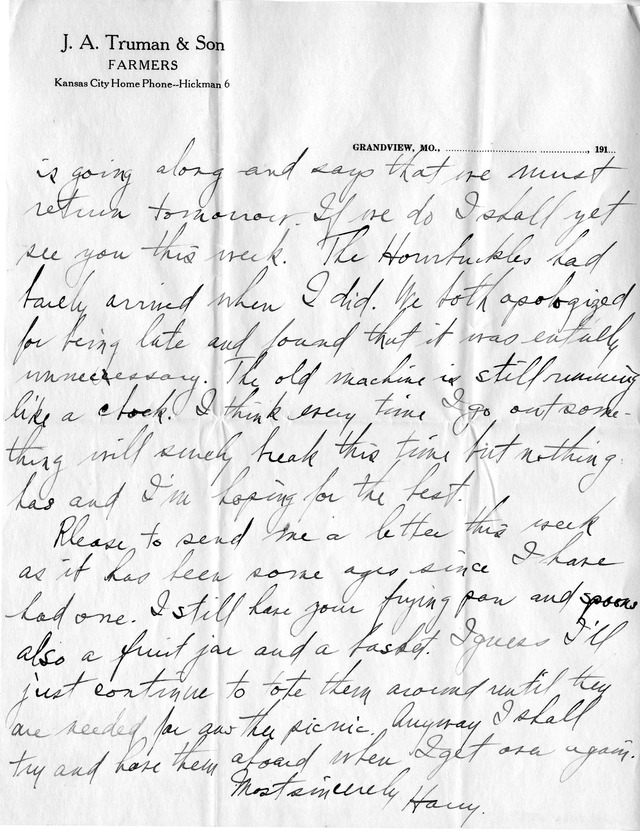 J. A. Truman & Son
FARMERS
Kansas City Home Phone--Hickman 6
GRANDVIEW, MO., ................................................, 191...
is going along and says that we must
return tomorrow. If we do I shall yet
see you this week. The Hornbuckles had
barely arrived when I did. We both apologized
for being late and found that it was entirely
unnecessary. The old machine is still running
like a clock. I think every time I go out some-
thing will surely break this time but nothing
has and I'm hoping for the best.
Please to send me a letter this week
as it has been some ages since I have
had one. I still have your frying pan and spoons
also a fruit jar and a basket. I guess I'll
just continue to tote them around until they
are needed for another picnic. Anyway I shall
try and have them aboard when I get over again.
Most sincerely
Harry.